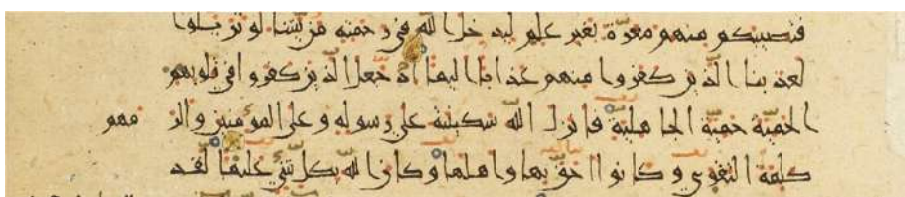 فتصيبكم منهم معرّة بغير علم ليدخل الله في رحمته من يشا لو تزيلوا
لعذبنا الّذين كفروا منهم عذابا اليما اذ جعل الّذين كفروا في قلوبهم
الحميّة حميّة الجاهليّة فانزل الله سكينته على رسوله وعلى المؤمنين والز مهم
كلمة التقوى وكانوا احقّ بها واهلها وكان الله بكلّ شي عليما لقد